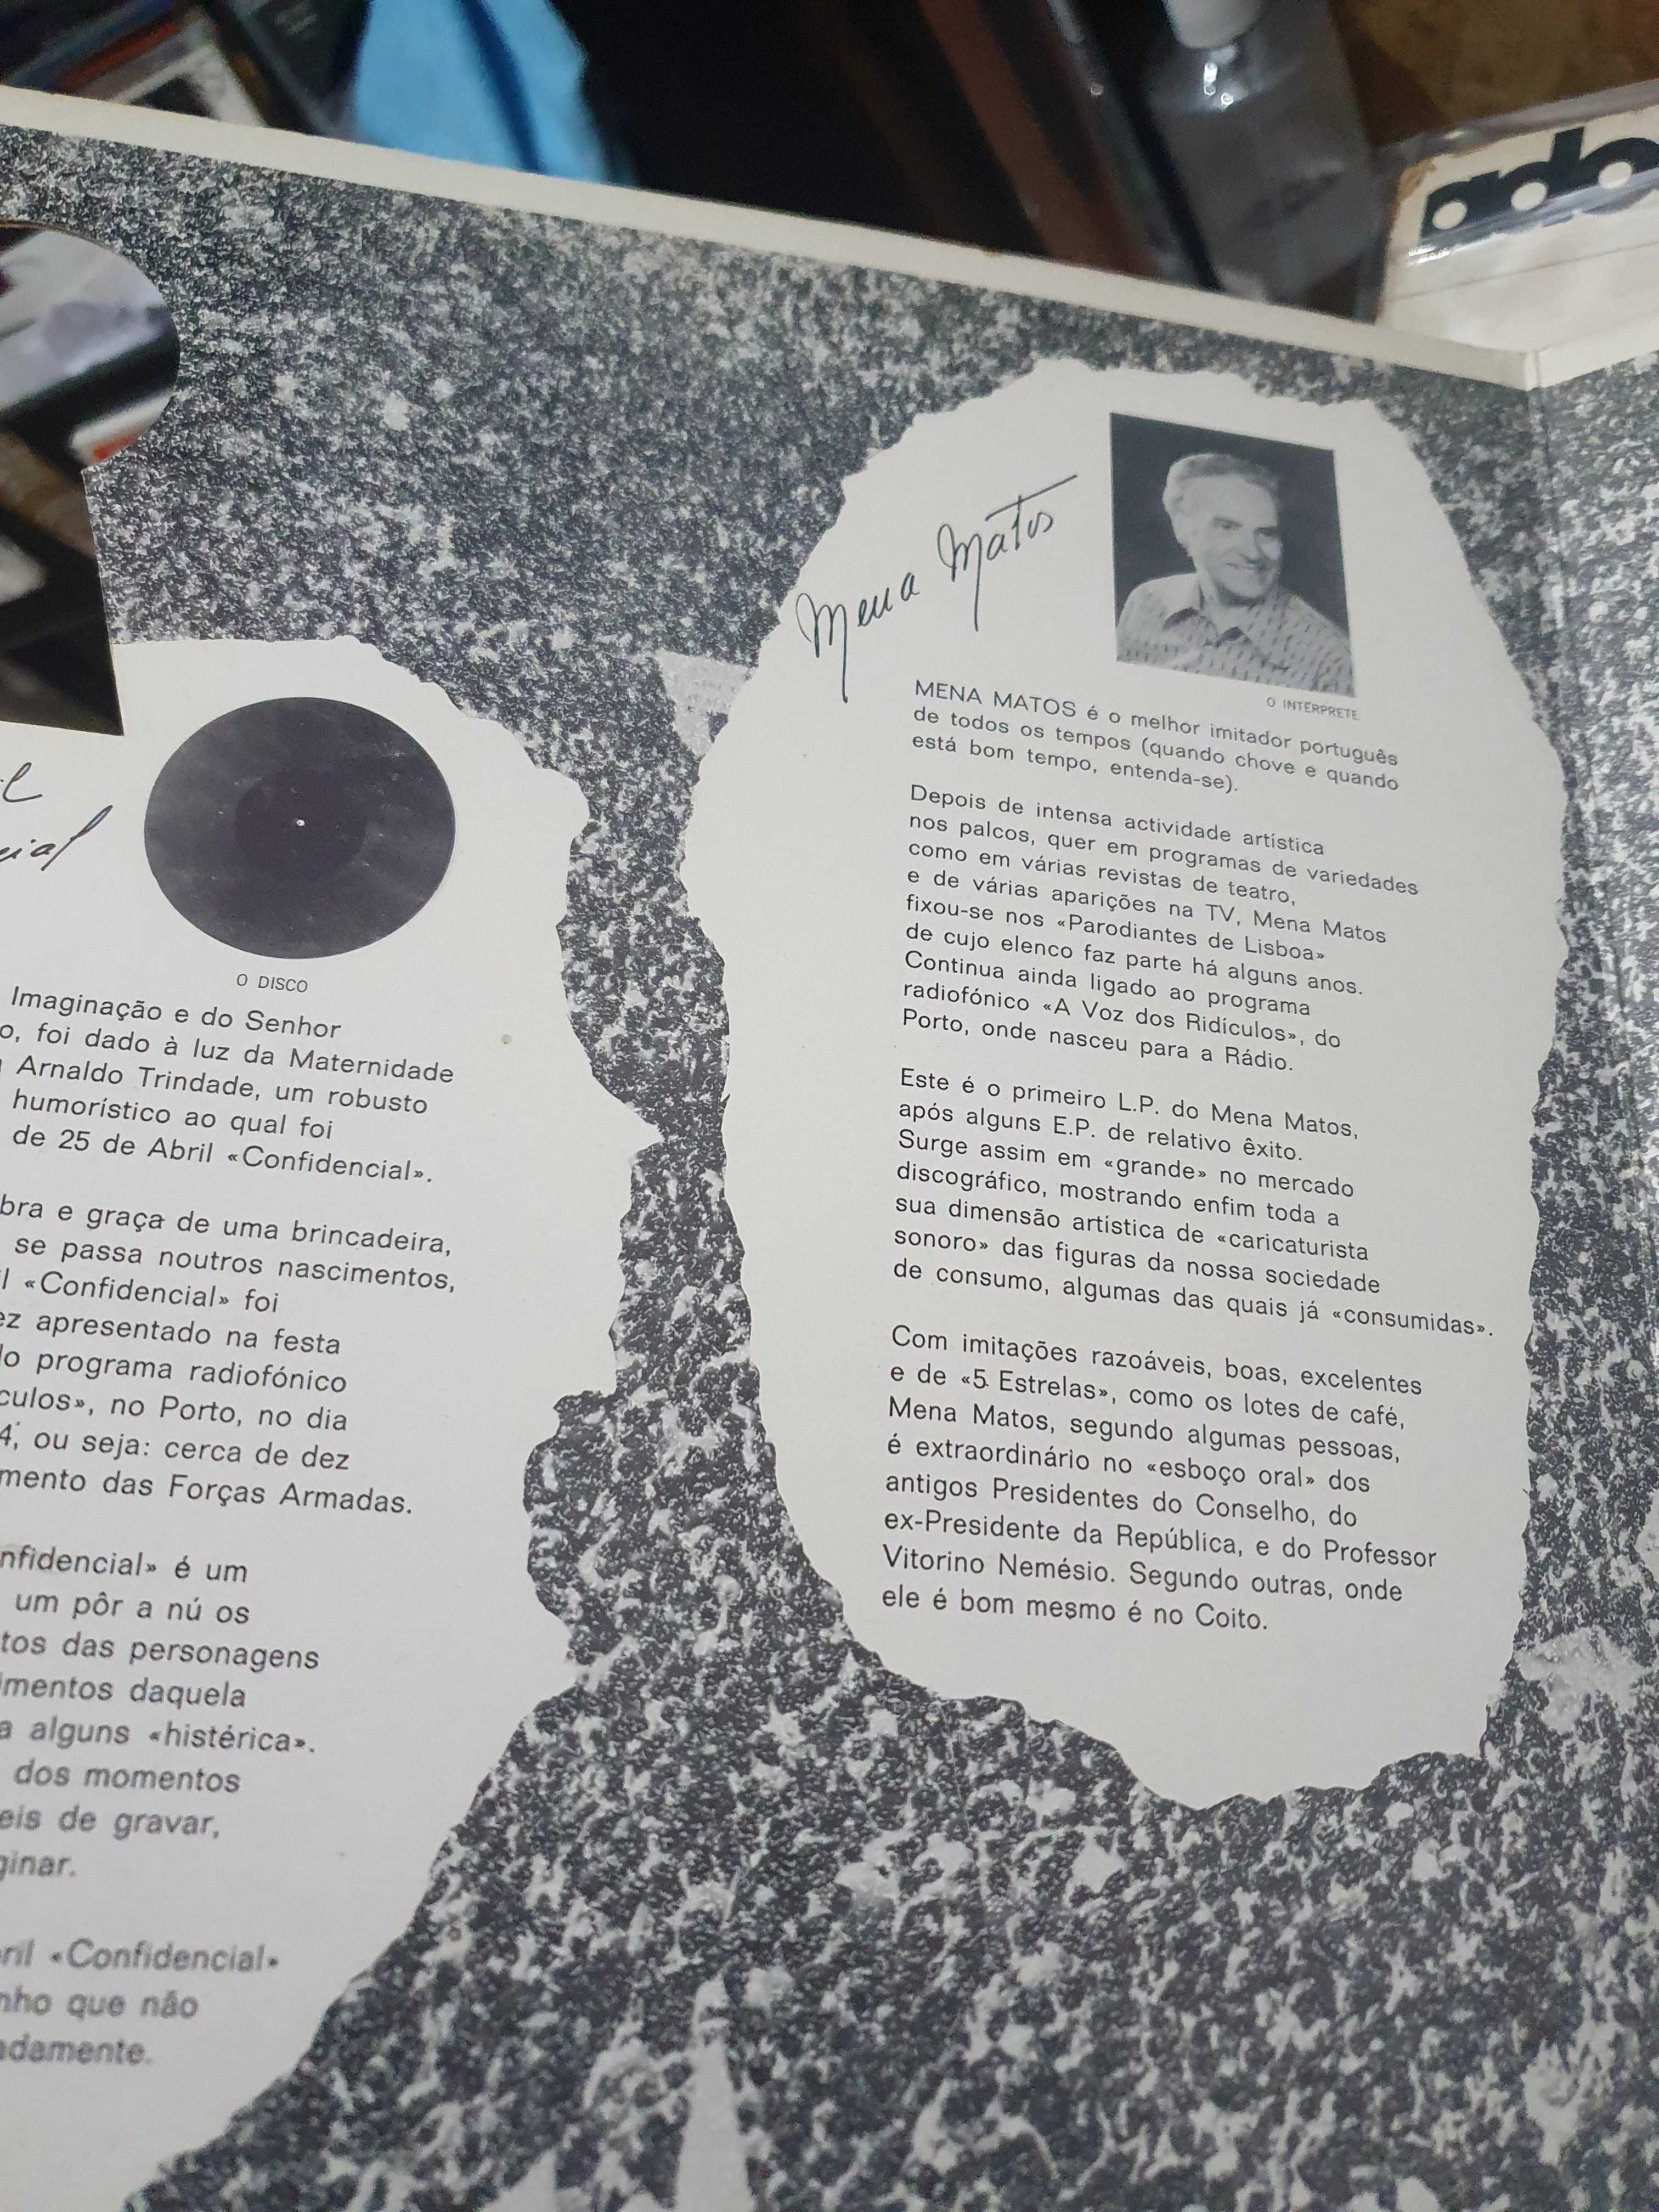 O DISCO
Imaginação e do Senhor
foi dado à luz da Maternidade
Arnaldo Trindade, um robusto
humorístico ao qual foi
de 25 de Abril «Confidencial».
e graça de uma brincadeira,
se passa noutros nascimentos,
«Confidencial» foi
apresentado na festa
programa radiofónico
no Porto, no dia
ou seja: cerca de dez
das Forças Armadas.
é um
um pôr a nú os
das personagens
daquela
a alguns «histérica».
dos momentos
de gravar,
«Confidencial»
que não
Mena Matos
O INTÉRPRETE
MENA MATOS é o melhor imitador português
de todos os tempos (quando chove e quando
está bom tempo, entenda-se).
Depois de intensa actividade artística
nos palcos, quer em programas de variedades
como em várias revistas de teatro,
e de várias aparições na TV, Mena Matos
fixou-se nos «Parodiantes de Lisboa»
de cujo elenco faz parte há alguns anos.
Continua ainda ligado ao programa
radiofónico «A Voz dos Ridículos», do
Porto, onde nasceu para a Rádio.
Este é o primeiro L.P. do Mena Matos,
após alguns E.P. de relativo êxito.
Surge assim em «grande» no mercado
discográfico, mostrando enfim toda a
sua dimensão artística de «caricaturista
sonoro» das figuras da nossa sociedade
de consumo, algumas das quais já «consumidas».
Com imitações razoáveis, boas, excelentes
e de «5 Estrelas», como os lotes de café,
Mena Matos, segundo algumas pessoas,
é extraordinário no «esboço oral» dos
antigos Presidentes do Conselho, do
ex-Presidente da República, e do Professor
Vitorino Nemésio. Segundo outras, onde
ele é bom mesmo é no Coito.